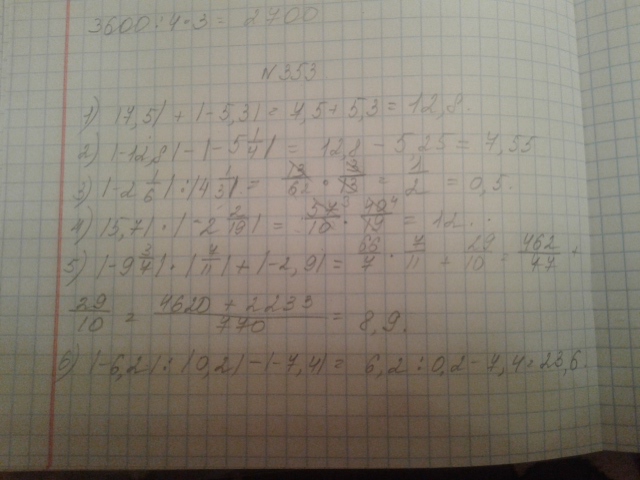 3600 : 4 · 3 = 2700
N 353
1) |7,5| + |-5,3| = 7,5 + 5,3 = 12,8.
2) |-12,8| - |-5 1/4| = 12,8 - 5,25 = 7,55
3) |-2 1/6| : |4 1/3| = 13/62 · 3/13 = 1/2 = 0,5.
4) |5,7| · |-2 2/19| = 57/10 · 40/19 = 12.
5) |-9 3/7| · |7/11| + |-2,9| = 66/7 · 7/11 + 29/10 = 462/77 +
29/10 = 4620 + 2233/770 = 8,9.
6) |-6,2| : |0,2| - |-7,4| = 6,2 : 0,2 - 7,4 = 23,6.